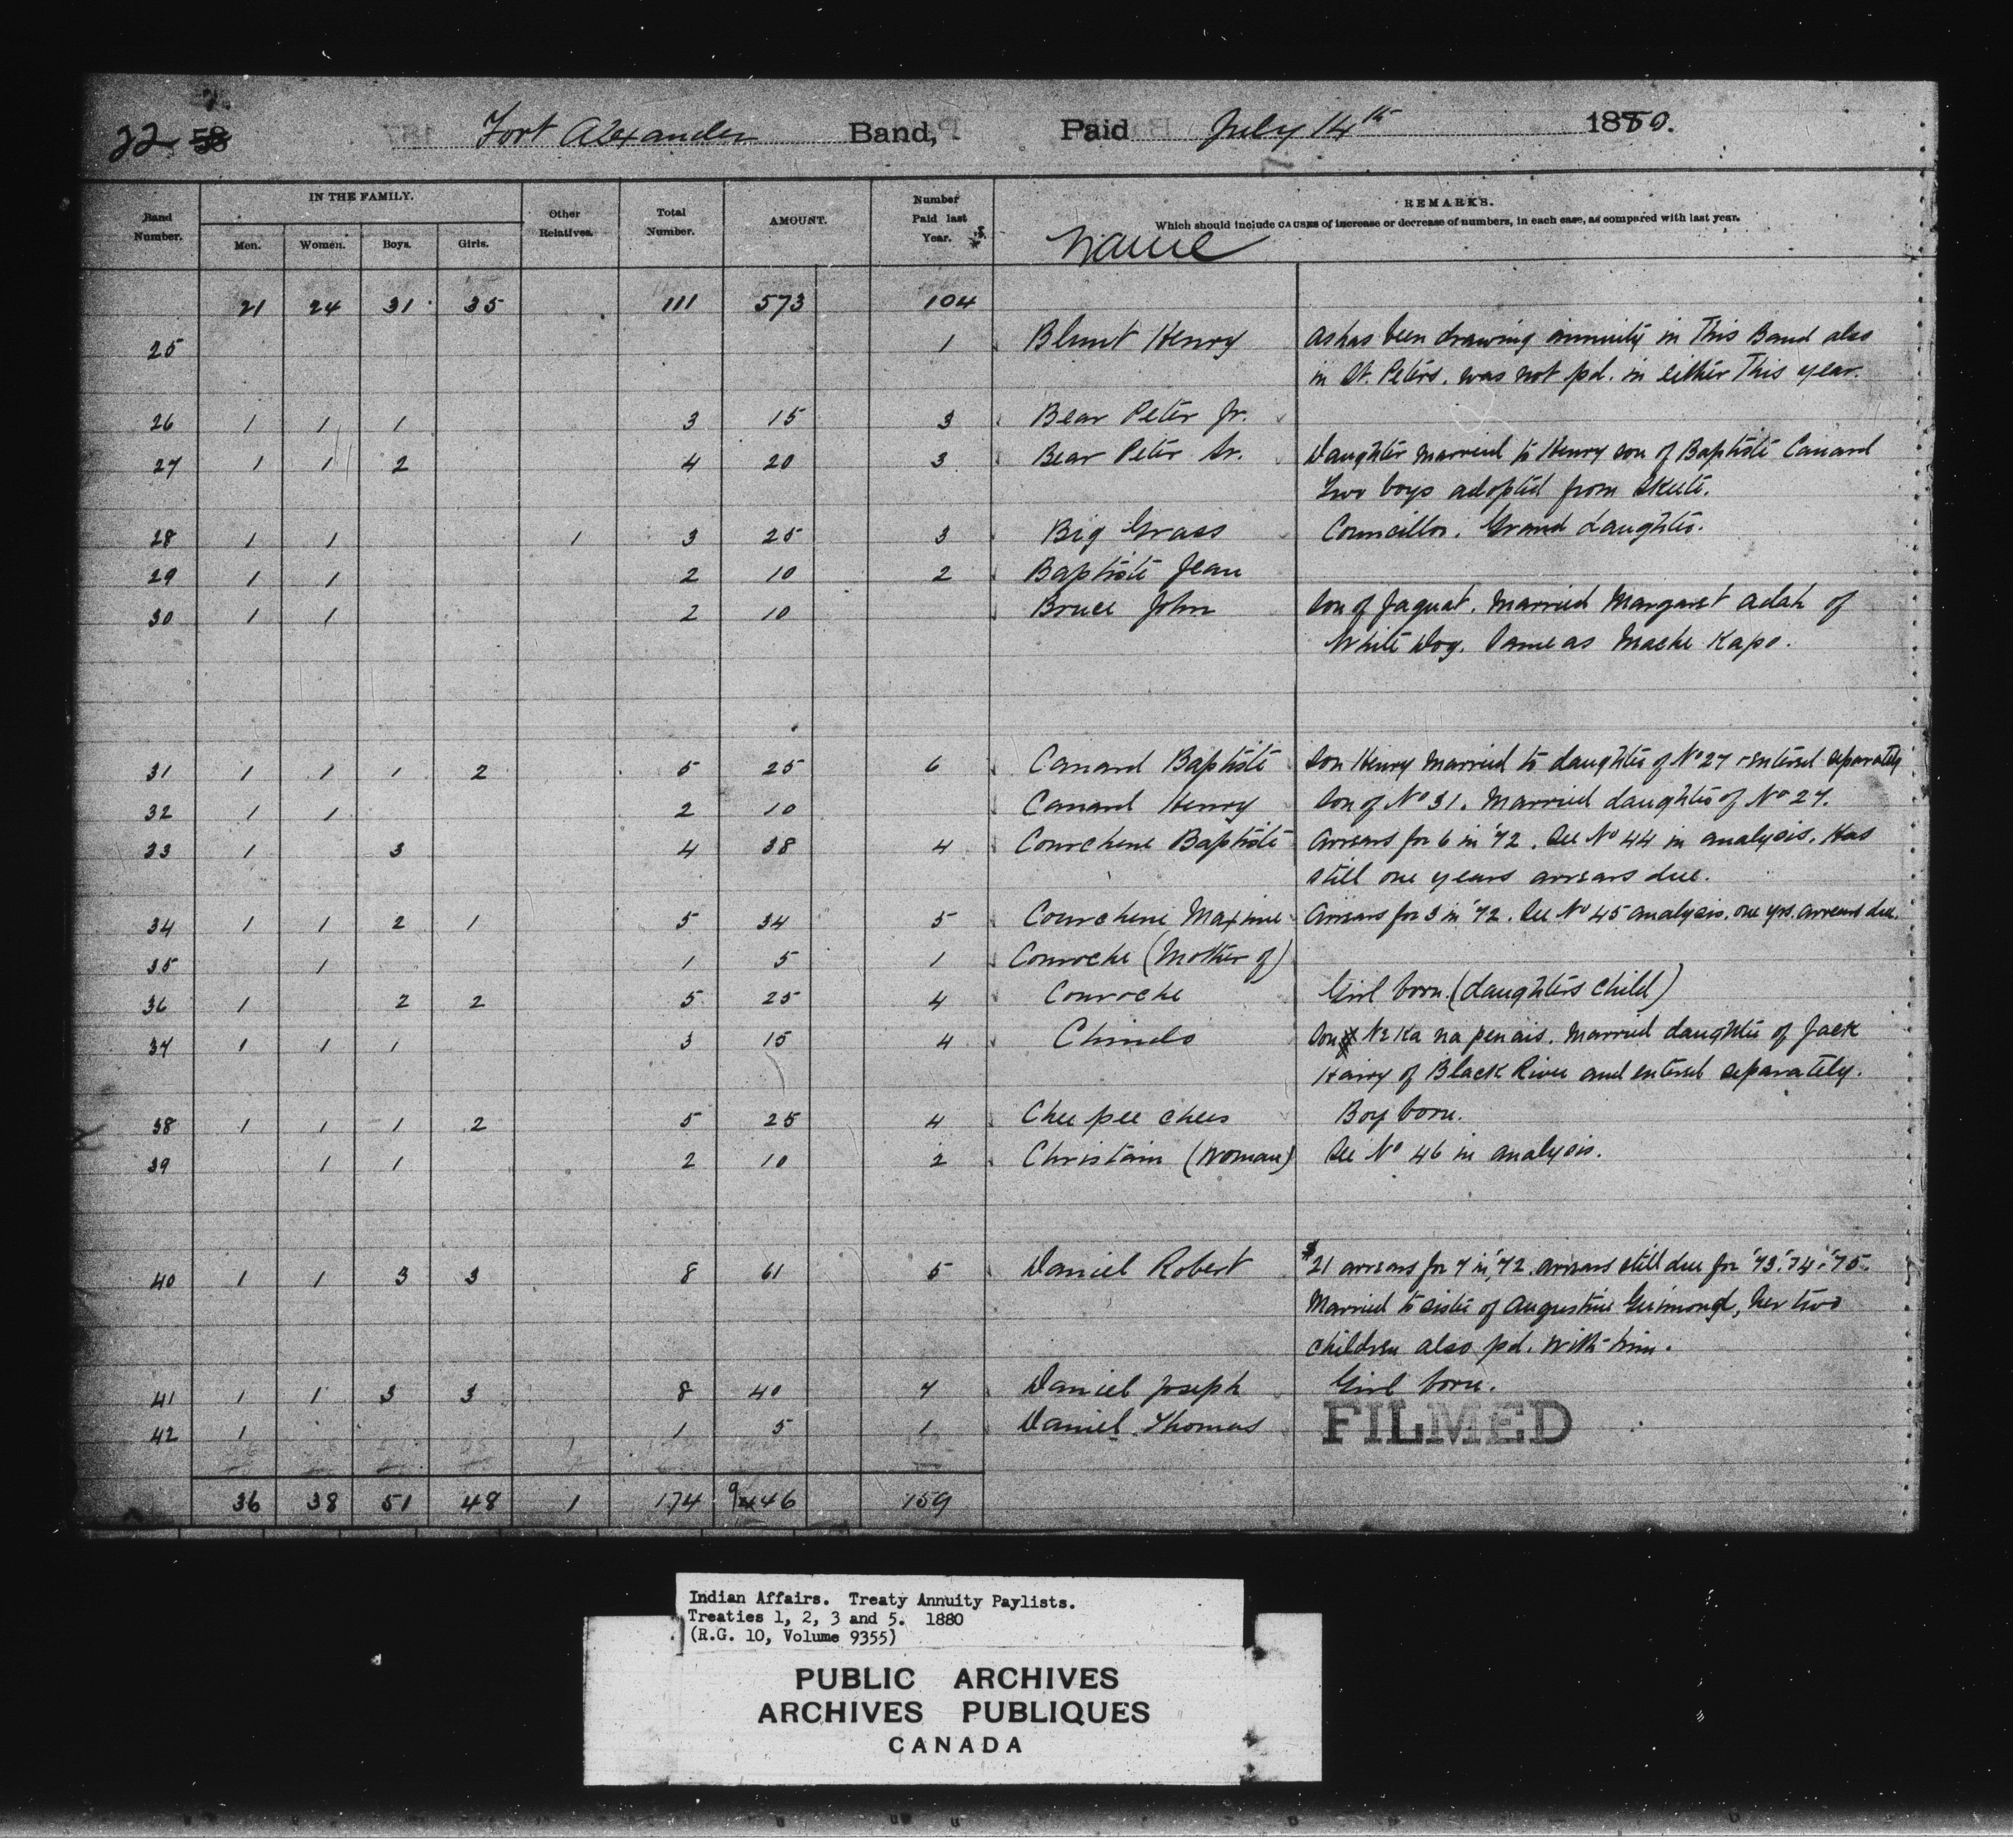 22 58
Fort Alexander Band, Paid July 14th 1880.
Band Number. IN THE FAMILY. Men. Women. Boys. Girls. Other Relatives. Total Number. AMOUNT. Number Paid last Year. REMARKS.
Which should include CAUSES of increase or decrease of numbers, in each case, as compared with last year.
Name
21 24 31 35 111 573 104
25 1 Blunt Henry as has been drawing annuity in This Band also
in St. Peters. was not pd. in either This year.
26 1 1 1 3 15 3 Bear Peter Jr.
27 1 1 2 4 20 3 Bear Peter Sr. Daughter married to Henry son of Baptiste Canard
Two boys adopted from Skete.
28 1 1 1 3 25 3 Big Grass Councillor. Grand daughter.
29 1 1 2 10 2 Baptiste Jean
30 1 1 2 10 Bruce John Son of Jaquat. Married Margaret Adah of
White Dog. Same as Mache Kapo.
31 1 1 1 2 5 25 6 Canard Baptiste Son Henry married to daughter of No 27 & entered separately
32 1 1 2 10 Canard Henry Son of No 31. Married daughter of No 27.
33 1 3 4 38 4 Courchene Baptiste Arrears for 6 in '72. See No 44 in analysis. Has
still one years arrears due.
34 1 1 2 1 5 34 5 Courchene Maxime Arrears for 3 in '72. See No 45 analysis. one yrs. arrears due.
35 1 1 5 1 Couroche (Mother of)
36 1 2 2 5 25 4 Couroche Girl born. (daughters child)
37 1 1 1 3 15 4 Chindo Son Ne Ka na penais. Married daughter of Jack
Hairy of Black River and entered separately.
38 1 1 1 2 5 25 4 Chee pee chees Boy born.
39 1 1 2 10 2 Christain (woman) See No 46 in analysis.
40 1 1 3 3 8 61 5 Daniel Robert $21 arrears for 7 in '72. arrears still due for '73. '74. '75.
Married to sister of Augustine Guimond, her two
children also pd. with him.
41 1 1 3 3 8 40 7 Daniel Joseph Girl born.
42 1 1 5 1 Daniel Thomas
FILMED
36 38 51 48 1 174 946 159
Indian Affairs. Treaty Annuity Paylists.
Treaties 1, 2, 3 and 5. 1880
(R.G. 10, Volume 9355)
PUBLIC ARCHIVES
ARCHIVES PUBLIQUES
CANADA